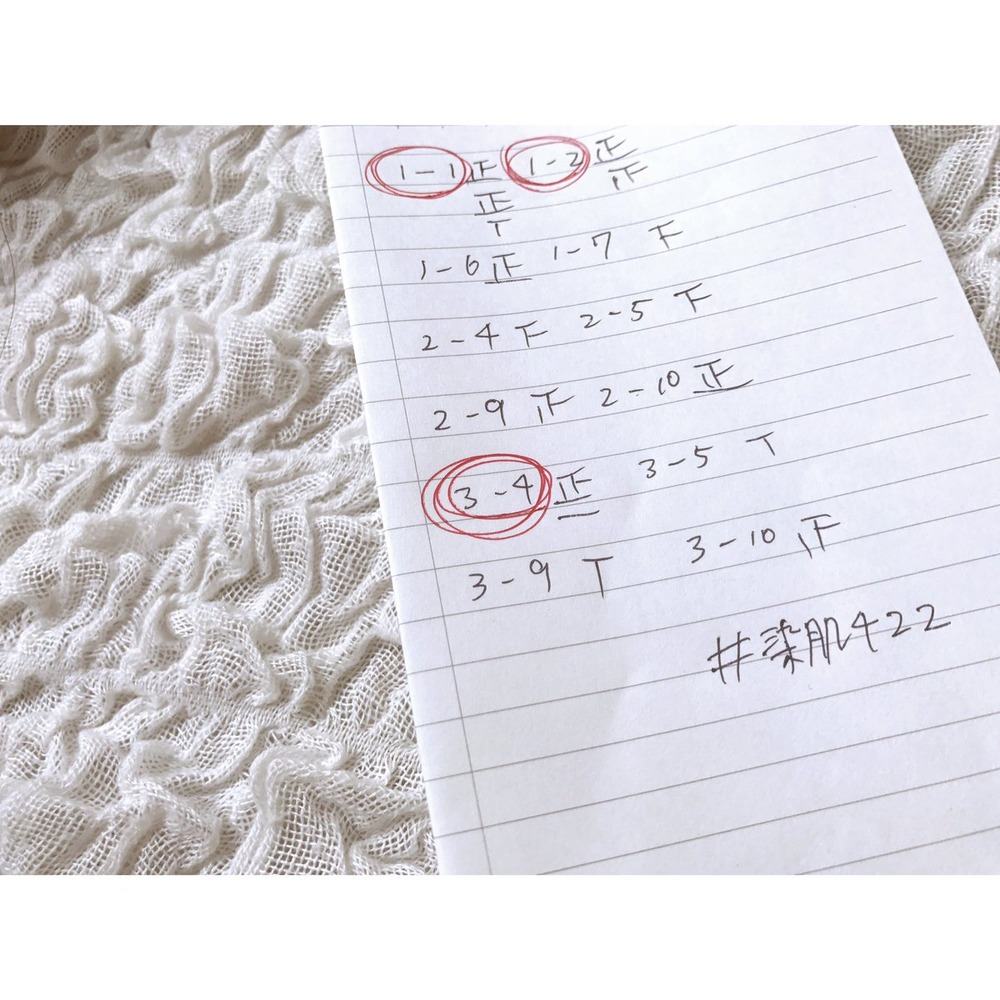 1-1 正 1-2 正
正 正
T
1-6 正 1-7 下
2-4 下 2-5 下
2-9 正 2-10 正
3-4 正 3-5 T
一
3-9 T 3-10 正
#染肌422